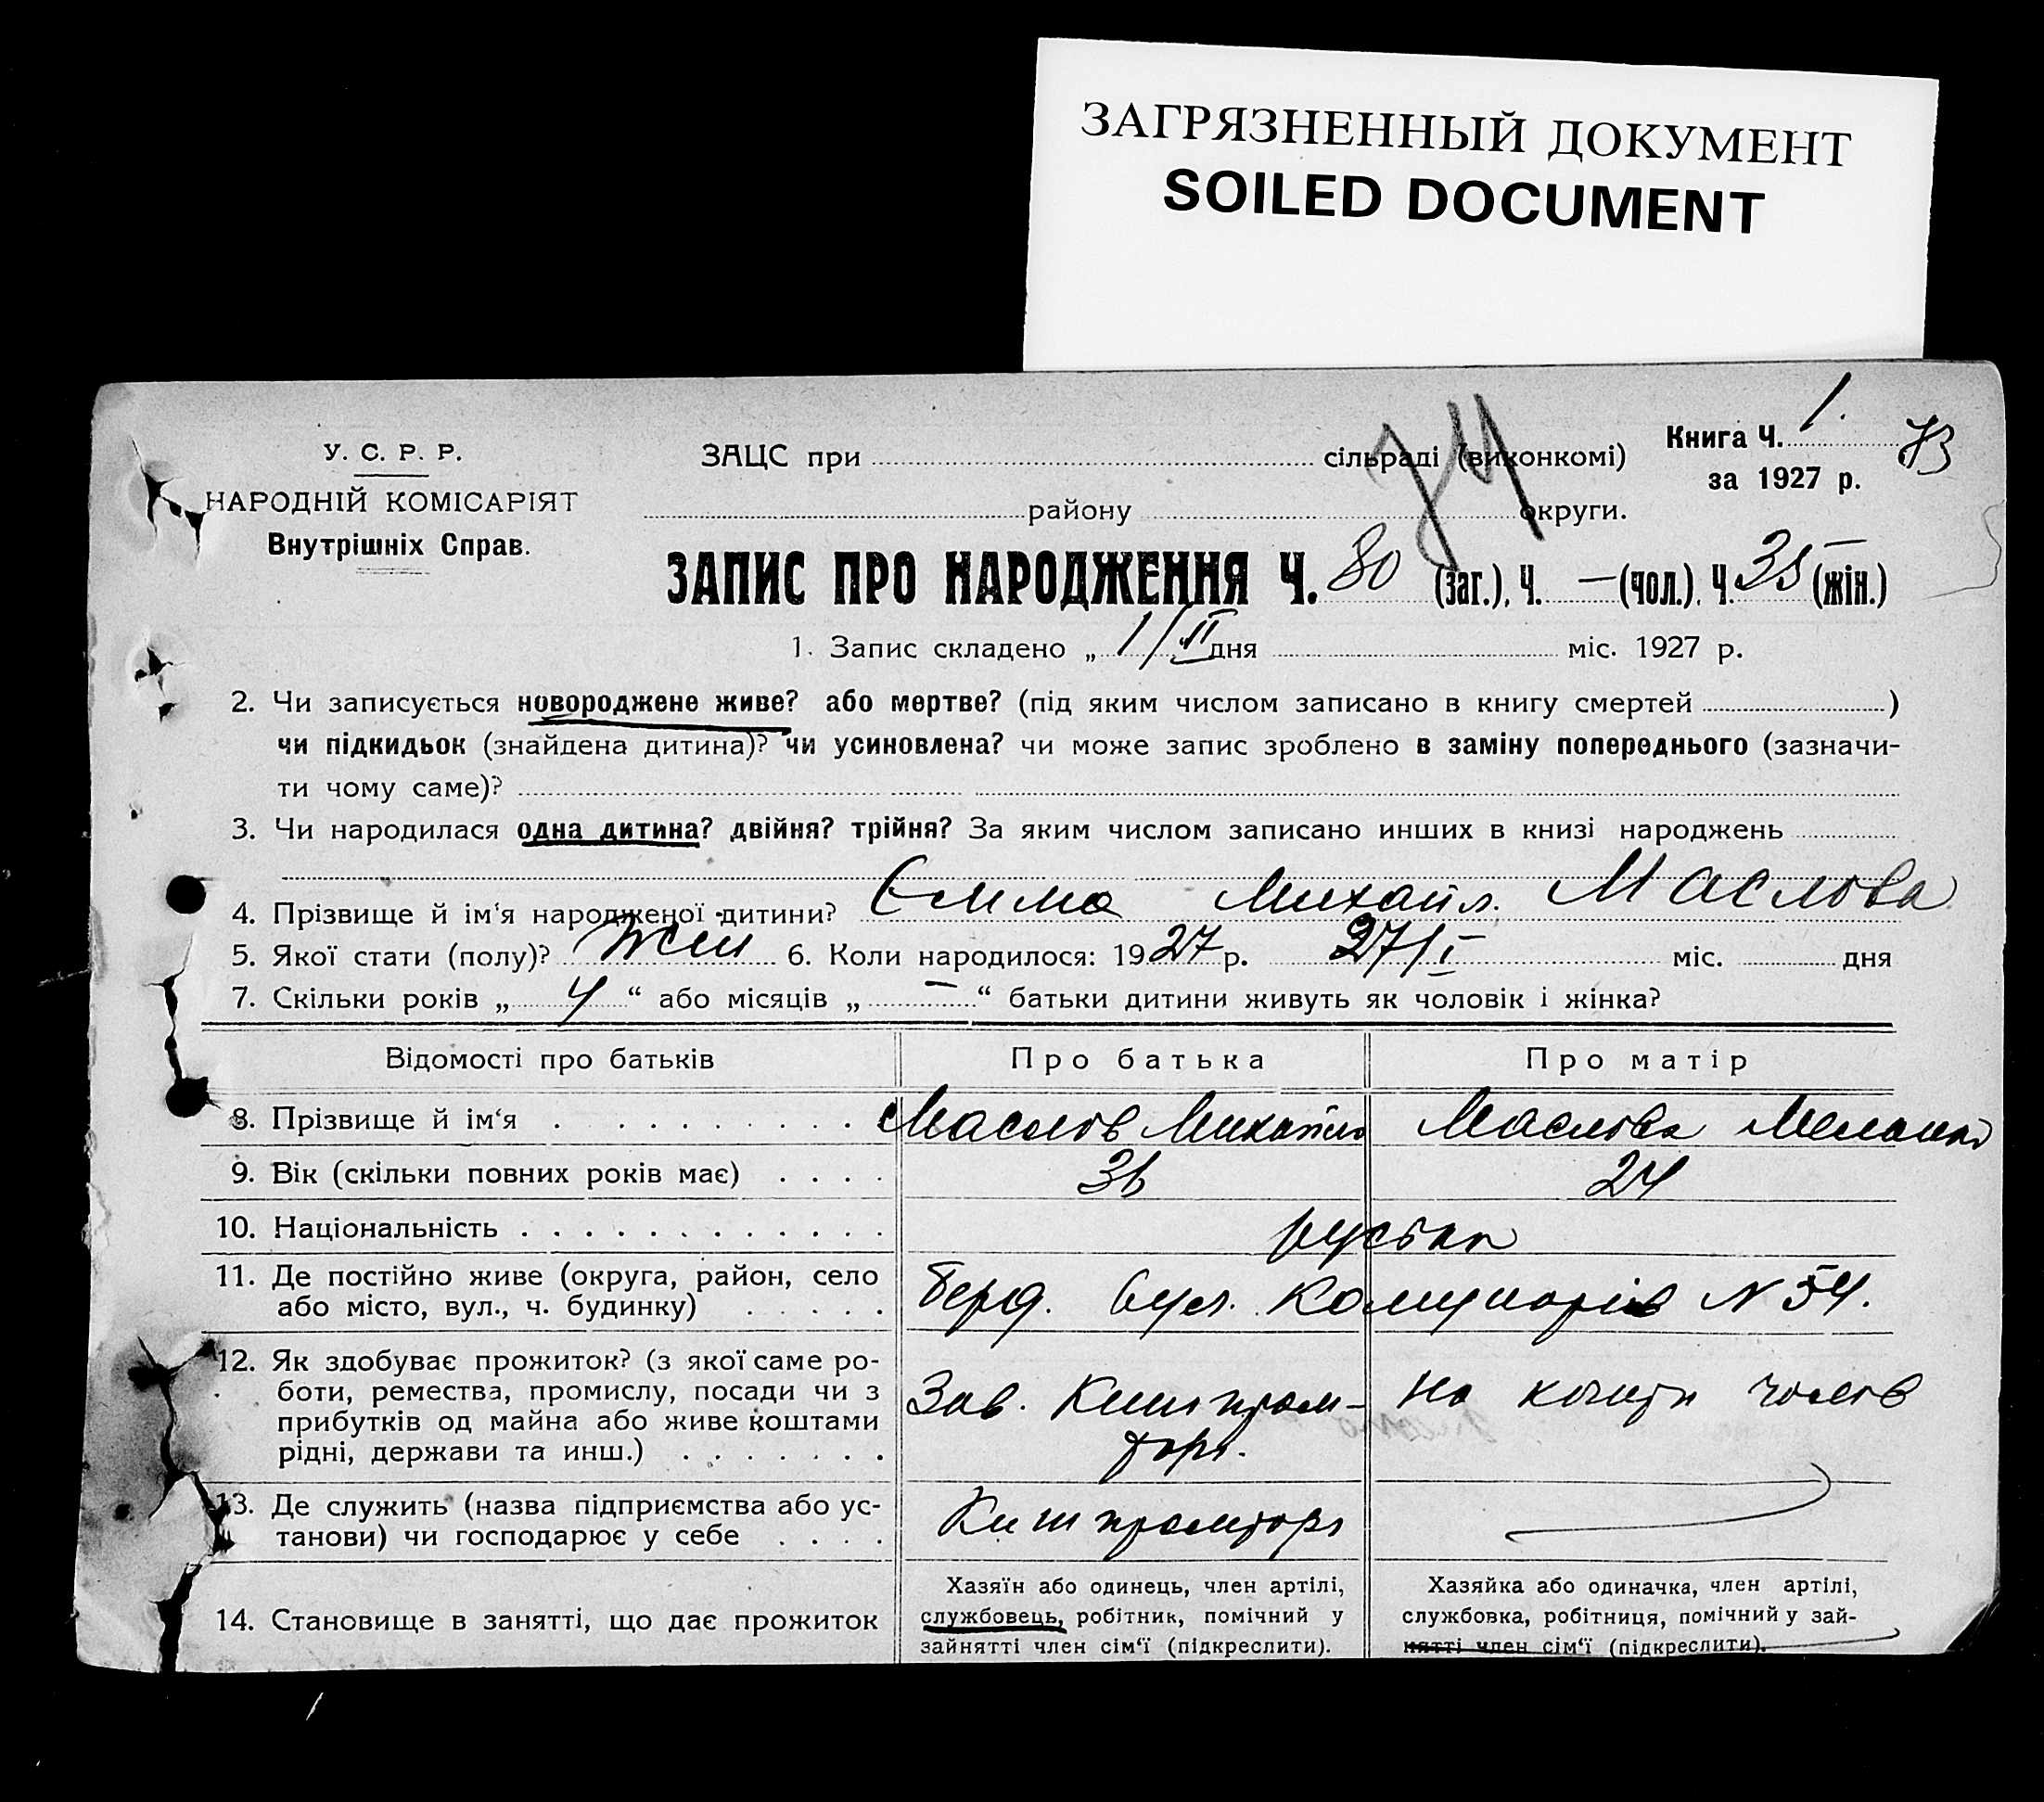 ЗАГРЯЗНЕННЫЙ ДОКУМЕНТ
SOILED DOCUMENT
Книга Ч. 1.
за 1927 р.
73
74
У. С. Р. Р.
НАРОДНІЙ КОМІСАРІЯТ
Внутрішніх Справ.
ЗАЦС при сільраді (виконкомі)
району округи.
ЗАПИС ПРО НАРОДЖЕННЯ Ч. 80 (заг.), Ч. — (чол.), Ч. 35 (жін.)
1. Запис складено „ 1/II дня міс. 1927 р.
2. Чи записується новороджене живе? або мертве? (під яким числом записано в книгу смертей )
чи підкидьок (знайдена дитина)? чи усиновлена? чи може запис зроблено в заміну попереднього (зазначи-
ти чому саме)?
3. Чи народилася одна дитина? двійня? трійня? За яким числом записано инших в книзі народжень
4. Прізвище й ім'я народженої дитини? Емма Михайл. Маслова
5. Якої стати (полу)? жін 6. Коли народилося: 1927 р. 27/I міс. дня
7. Скільки років „ 4 “ або місяців „ — “ батьки дитини живуть як чоловік і жінка?
Відомості про батьків Про батька Про матір
8. Прізвище й ім‘я Маслов Михайло Маслова Меланія
9. Вік (скільки повних років має) 36 24
10. Національність
11. Де постійно живе (округа, район, село
або місто, вул., ч. будинку)
Берд. вул. Комунарів N 54.
12. Як здобуває прожиток? (з якої саме ро-
боти, ремества, промислу, посади чи з
прибутків од майна або живе коштами
рідні, держави та инш.)
Зав. промторг.
На кошти чолов
13. Де служить (назва підприємства або ус-
танови) чи господарює у себе
промторг
14. Становище в занятті, що дає прожиток
Хазяїн або одинець, член артілі,
службовець, робітник, помічний у
зайнятті член сім‘ї (підкреслити).
Хазяйка або одиначка, член артілі,
службовка, робітниця, помічний у зай-
нятті член сім‘ї (підкреслити).